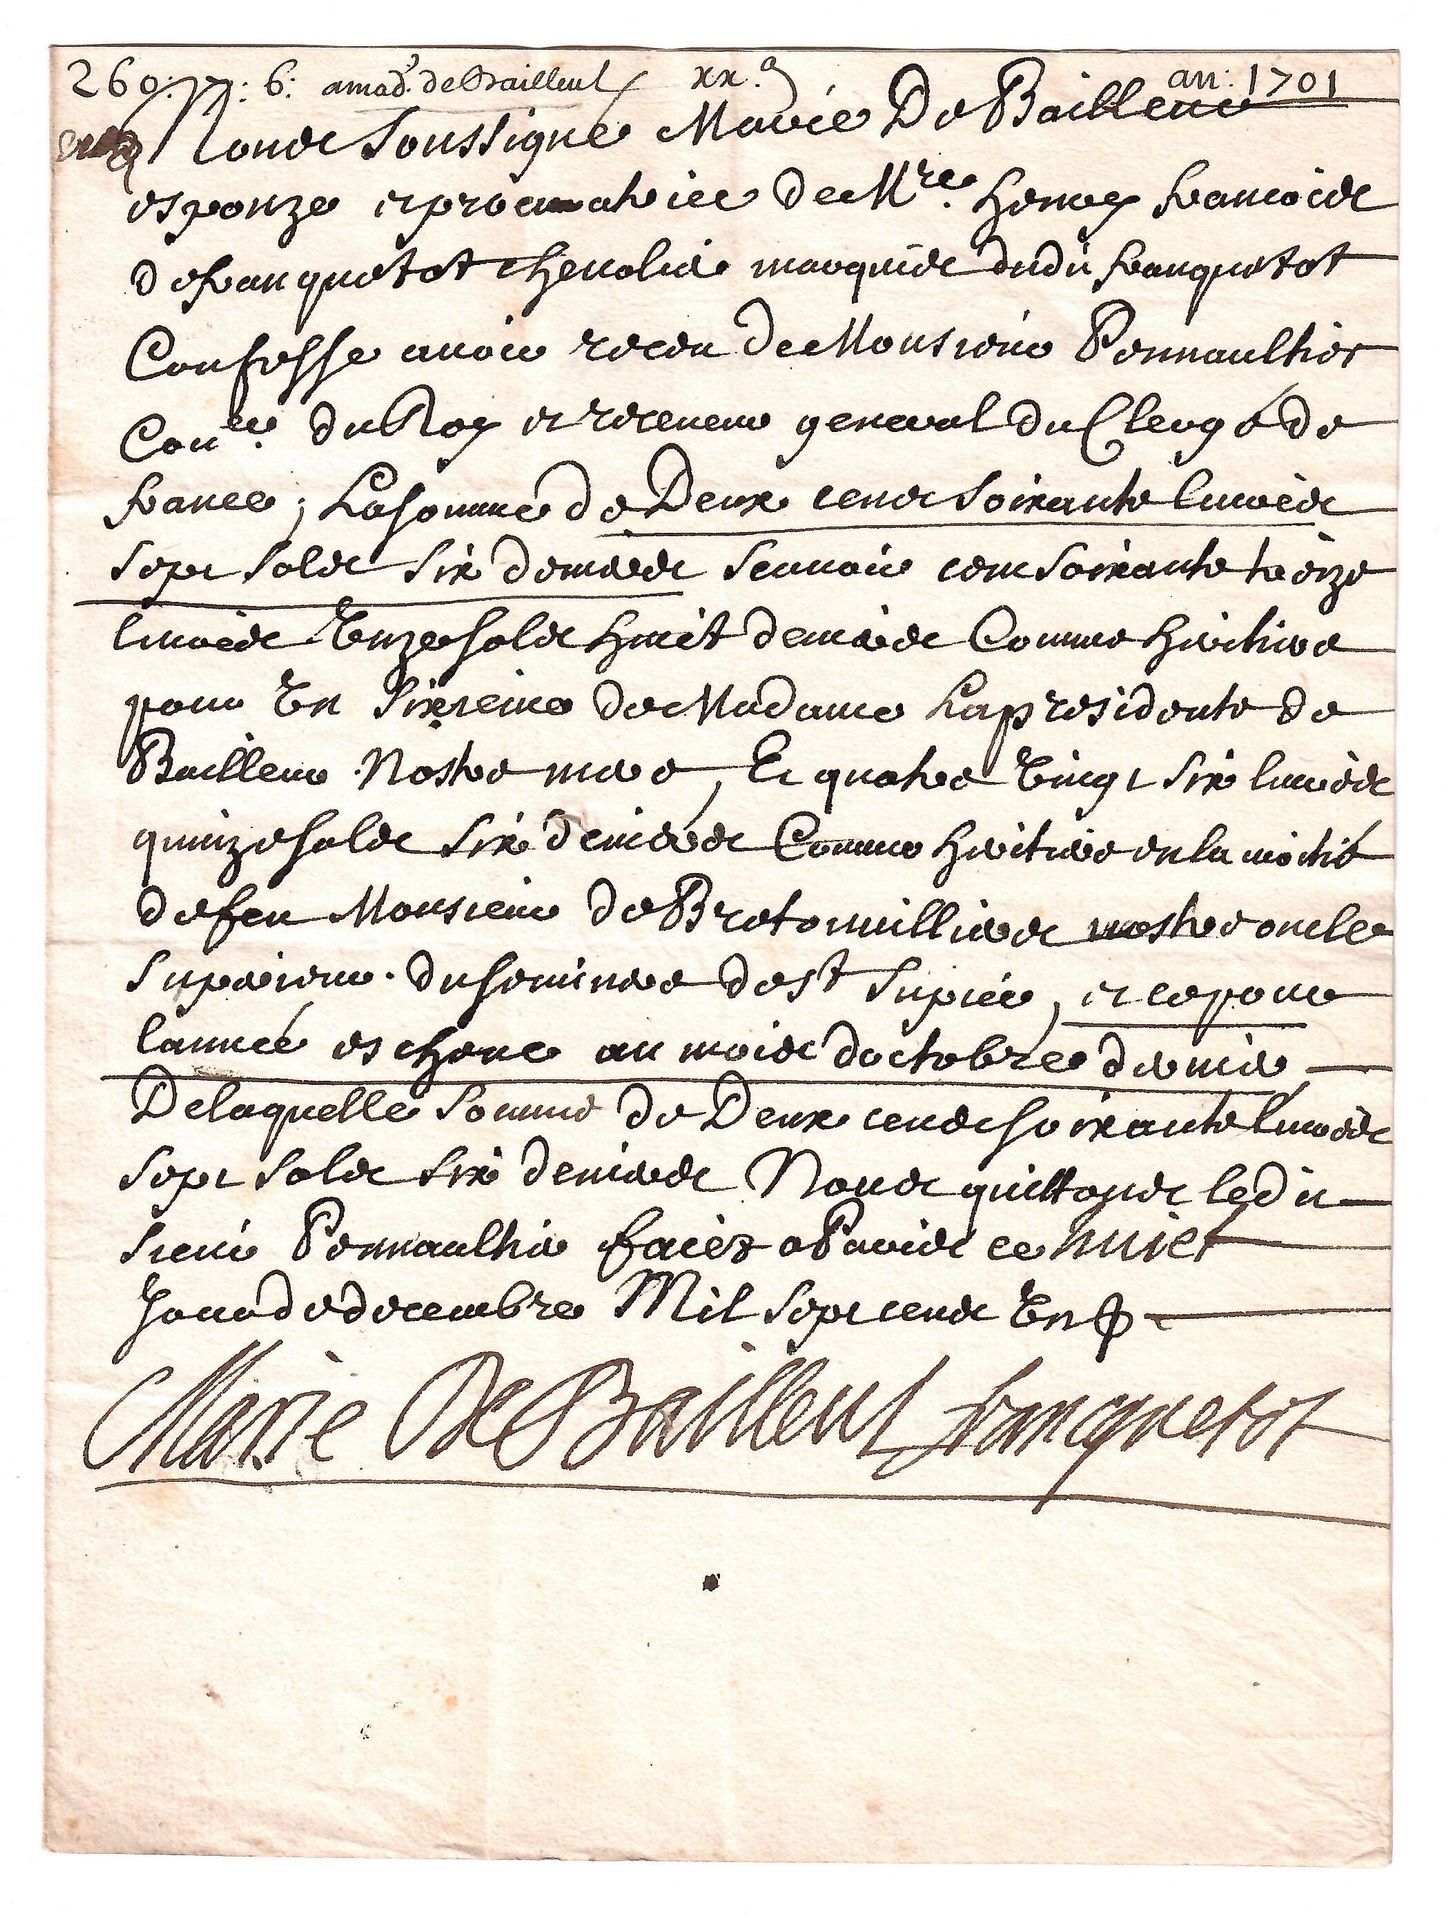 260: 7: 6: a mad.^e de Bailleul xx.^a an: 1701
Nous Soussigné Marie De Bailleul
espouze et procuratrice de M^re. Henry francois
de franquetot chevalier marquis dudit franquetot
Confesse avoir receu de Monsieur Pennaultier
Con^er. du Roy et receveur general du Clergé de
france ; La somme de Deux cens soixante livres
sept sols six deniers scavoir cent soixante treize
livres Unze sols huit deniers Comme heritiere
pour Un sixieme de Madame La presidente de
Bailleul Nostre mere, Et quatre Vingt six livres
quinze sols six deniers Comme heritiere en la moitié
de feu Monsieur de Bretonvilliers nostre oncle
superieur du seminere de S^t Supice, et ce pour
lannée escheue au mois doctobre dernier
De laquelle somme de Deux cens soixante livres
sept sols six deniers Nous quittons ledit
sieur Pennaultier faict a Paris ce huict
Jour de decembre Mil sept cens Un
Marie De Bailleul franquetot